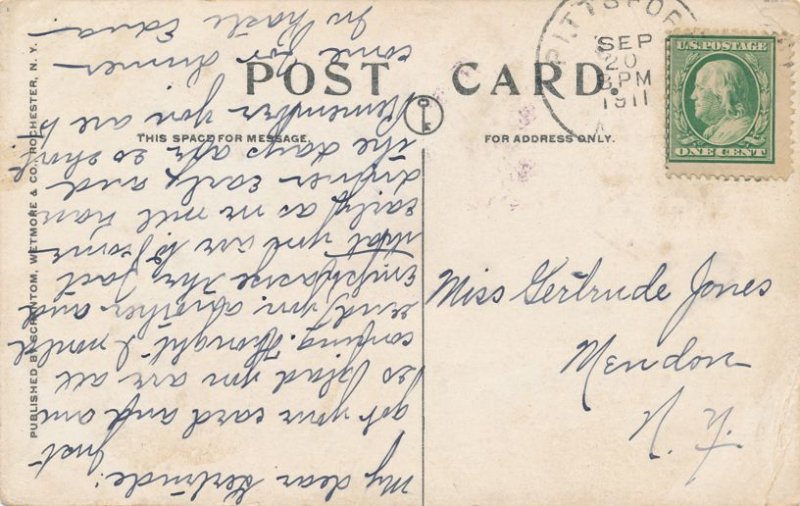 POST CARD.
THIS SPACE FOR MESSAGE.
FOR ADDRESS ONLY.
PUBLISHED BY SCRANTOM, WETMORE & CO., ROCHESTER, N. Y.
PITTSFOR
SEP
20
PM
1911
U.S. POSTAGE
ONE CENT
Miss Gertrude Jones
Mendon
N. Y.
My dear Gertrude:
Just
got your card and am
so glad you are all
coming. Thought I would
send you another and
emphasize the fact
that you are to come
early as we will have
dinner early and
the days are so short.
Remember you are to
come for dinner
In haste Edna